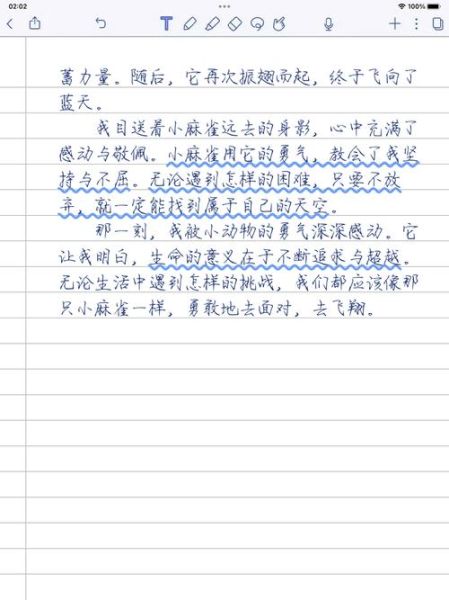 02:02
100%
T
蓄力量。随后，它再次振翅而起，终于飞向了
蓝天。
我目送着小麻雀远去的身影，心中充满了
感动与敬佩。小麻雀用它的勇气，教会了我坚
持与不屈。无论遇到怎样的困难，只要不放
弃，就一定能找到属于自己的天空。
那一刻，我被小动物的勇气深深感动。它
让我明白，生命的意义在于不断追求与超越。
无论生活中遇到怎样的挑战，我们都应该像那
只小麻雀一样，勇敢地去面对，去飞翔。